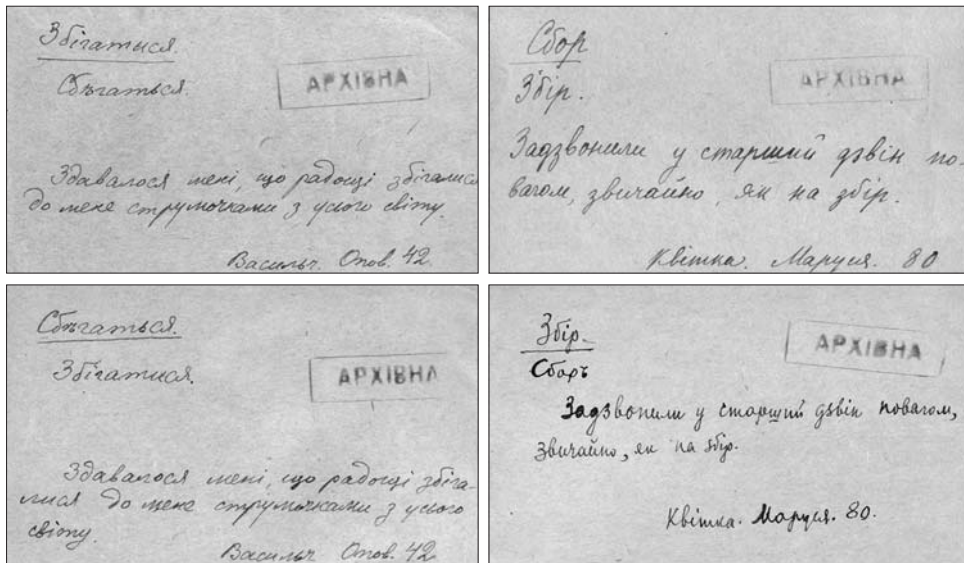 Збігатися.
Сбѣгаться.
АРХІВНА
Здавалося мені, що радощі збігалися
до мене струмочками з усього світу.
Васильч. Опов. 42
Сбор
Збір.
АРХІВНА
Задзвонили у старший дзвін по-
вагом, звичайно, як на збір.
Квітка. Маруся. 80
Сбѣгаться.
Збігатися.
АРХІВНА
Здавалося мені, що радощі збіга-
лися до мене струмочками з усього
світу.
Васильч Опов. 42
Збір.
Сборъ
АРХІВНА
Задзвонили у старший дзвін повагом,
звичайно, як на збір.
Квітка. Маруся. 80.